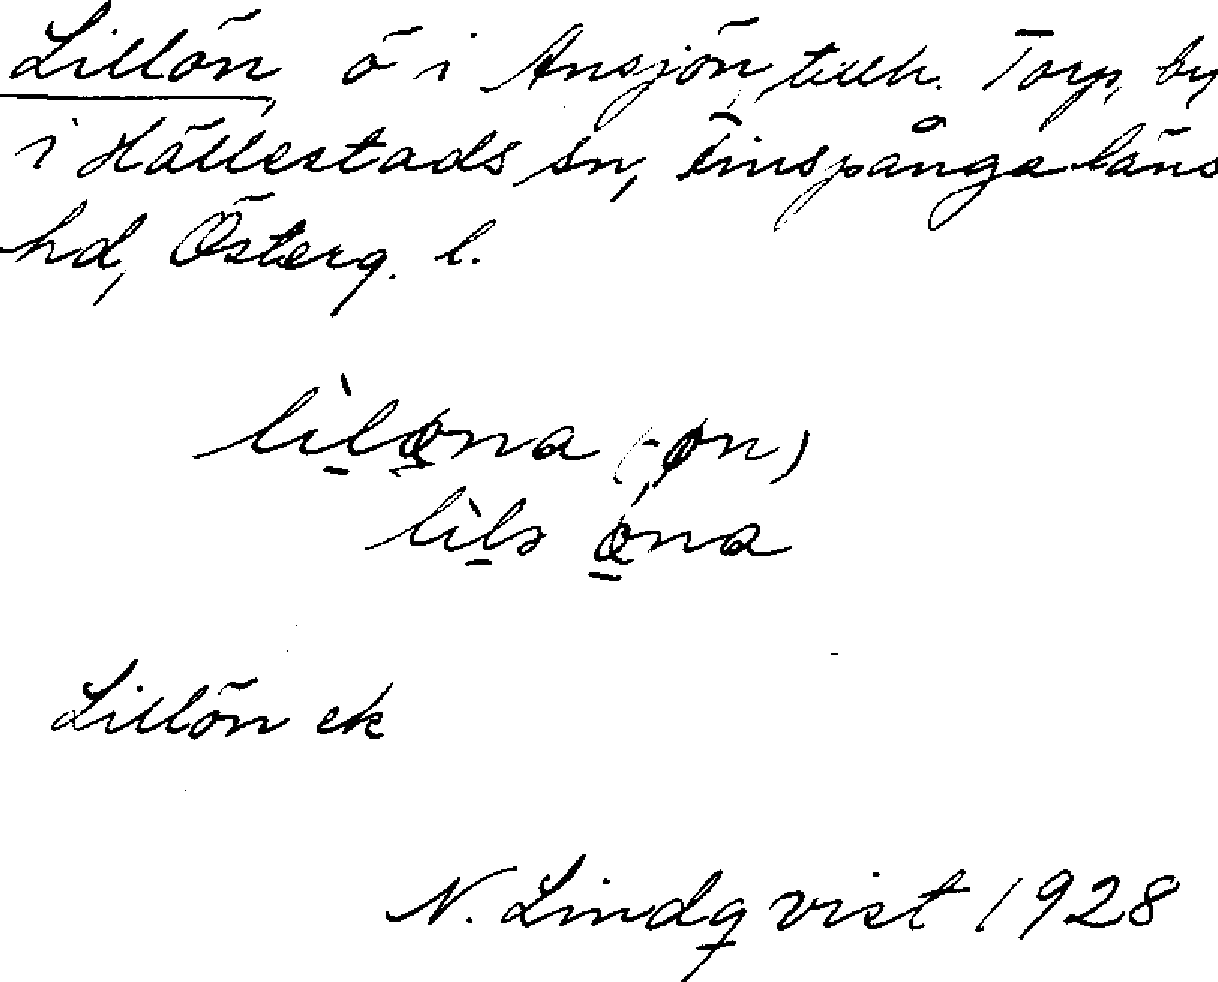 Lillön, ö i Ansjön, tillh. Torp, by
i Hällestads sn, Finspånga läns
hd, Österg. l.
lìl̲ø̲na (-øn)
lìl̲ə ǿ̲na
Lillön ek
N. Lindqvist 1928